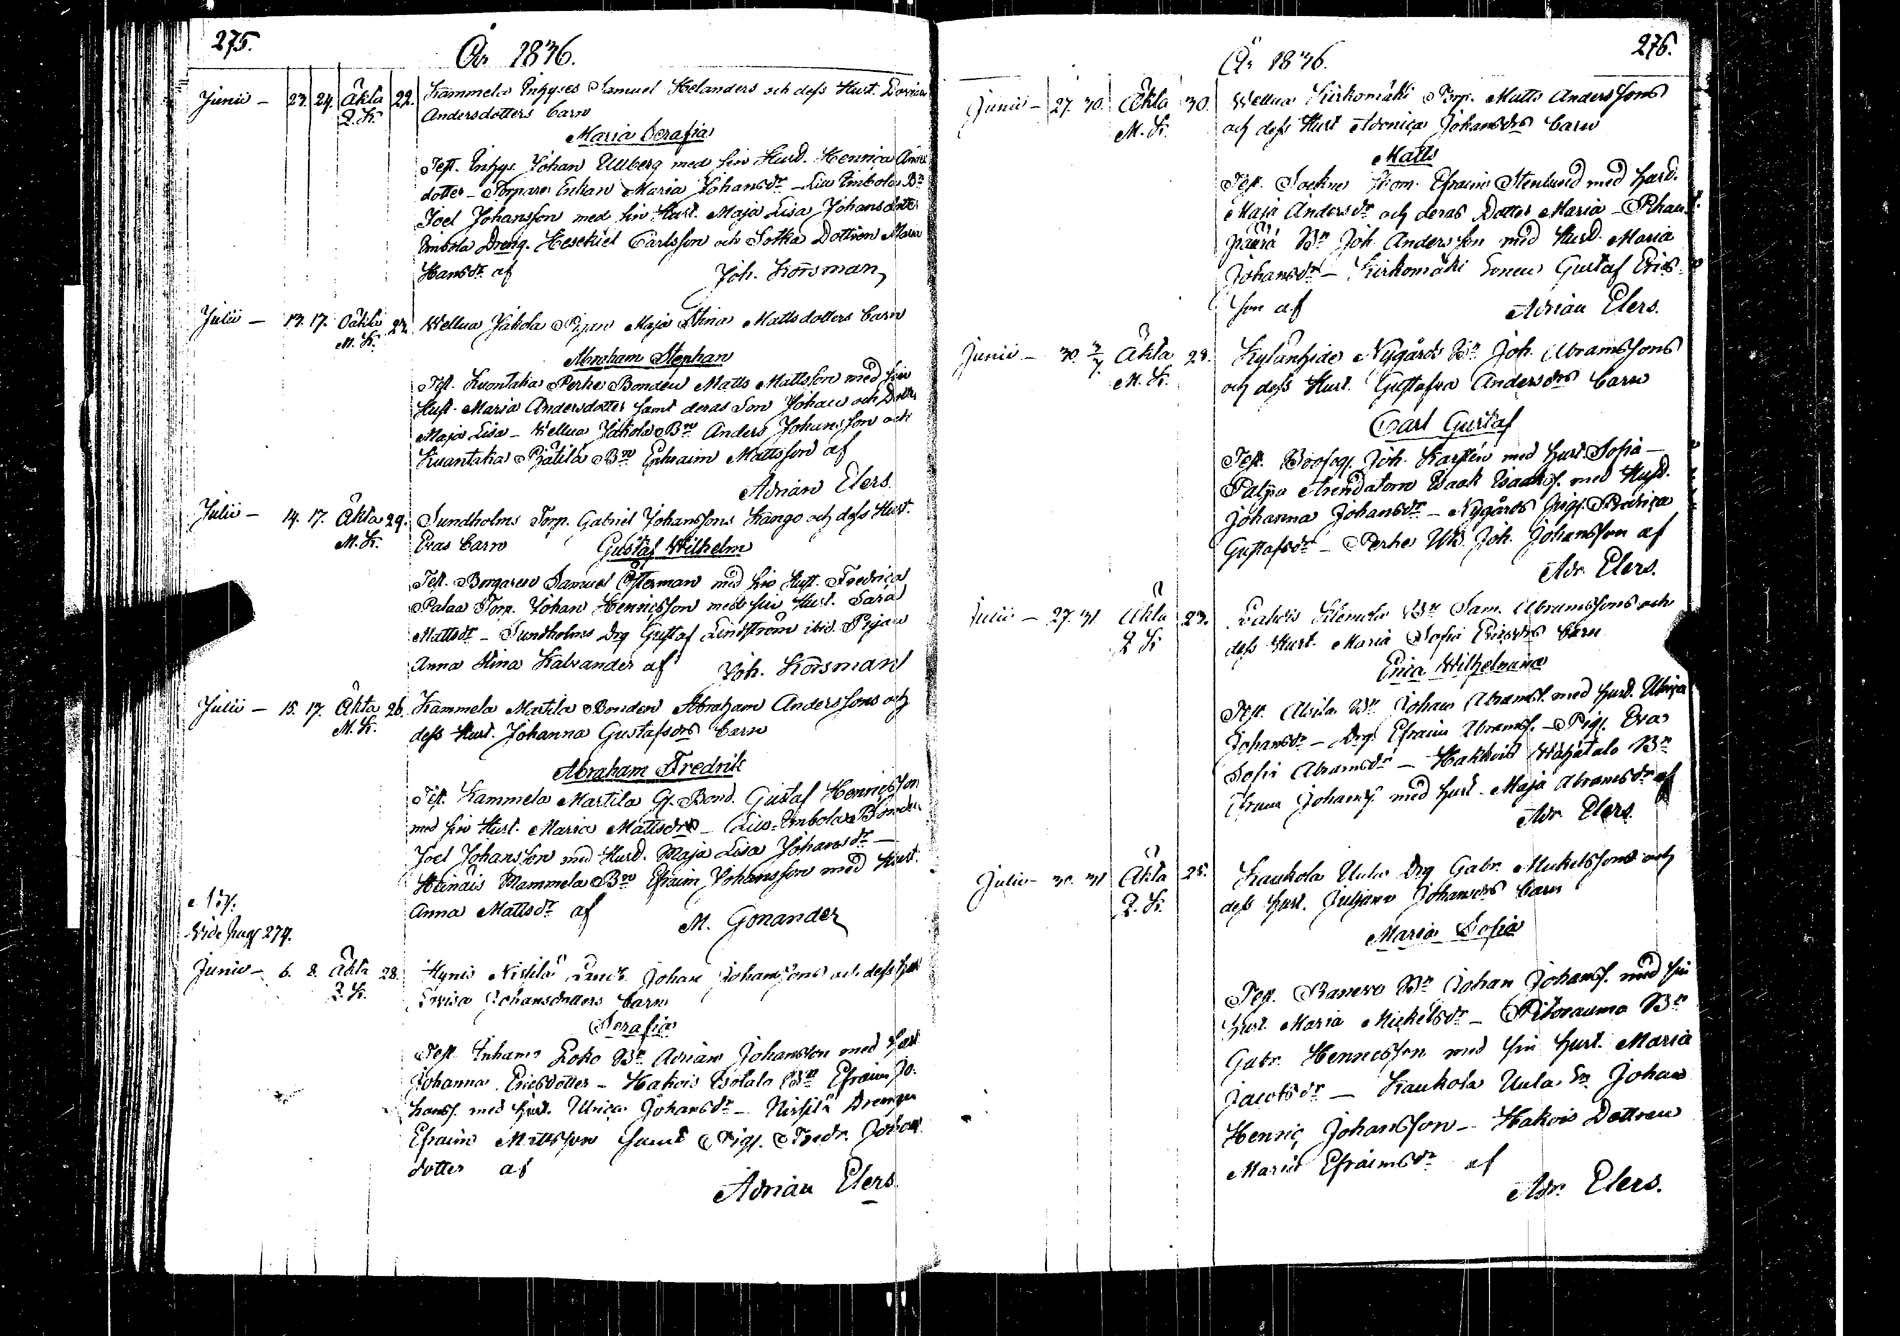 275.
År 1836.
Junii — 23. 24. Äkta 22. Kammela Inhyses Samuel Helanders och dess Hust. Lovisa
Q. K. Andersdotters barn
Maria Serafia
Test. Inhys. Johan Ullberg med sin Hust. Henrica Anders
dotter — Torpare Enkan Maria Johansdr — Lill Embola Bn
Joel Johansson med sin Hust. Maja Lisa Johansdotter
Embola Dreng. Hesekiel Carlsson och Sotka Dottren Maria
Hansdr af Joh. Korsman
Julii — 13. 17. Oäkta 23. Wellua Jakola Pigan Maja Stina Mattsdotters barn
M. K.
Abraham Stephan
Test. Kuontaka Perhe Bonden Matts Mattsson med sin
Hust. Maria Andersdotter samt deras Son Johan och Dotter
Maja Lisa — Wellua Jakola Bn Anders Johansson och
Kuantaka Ephraim Mattsson af
Adrian Elers.
Julii — 14. 17. Äkta 29. Sundholms Torp. Gabriel Johanssons Kango och dess Hust.
M. K. Evas barn Gustaf Wilhelm
Test. Borgaren Samuel Österman med sin Hust. Fredrica
Palaa Torp. Johan Henricsson med sin Hust. Sara
Mattsdr — Sundholms Drg Gustaf Lindström ibid. Pigan
Anna Stina Kalvander af Joh. Korsman
Julii — 15. 17. Äkta 26. Kammela Martila Bonden Abraham Anderssons och
M. K. dess Hust. Johanna Gustafsdrs barn
Abraham Fredrik
Test. Kammela Martila Bond. Gustaf Henricsson
med sin Hust. Maria Mattsdr — Lill-Embola Bonden
Joel Johansson med Hust. Maja Lisa Johansdr —
Heinäis Mammela Bn Efraim Johansson med Hust.
Anna Mattsdr af M. Gonander
Vide pag 274.
Junii — 6. 8. Äkta 28. Hynis Johan Johanssons och dess Hust
Q. K. Lovisa Johansdotters barn
Serafia
Test. Loko Bn Adrian Johansson med Hust
Johanna Ericsdotter — Hakois Isotalo Bn Efraim Jo-
hanss. med Hust. Ulrica Johansdr — Drengen
Efraim Mattsson samt Pig. Fredr. Johans
dotter af
Adrian Elers
276.
År 1836.
Junii — 27. 30. Äkta 30. Wellua Kirkomäki Torp. Matts Anderssons
M. K. och dess Hust Johansdrs barn
Matts
Test. Sockne Skom. Efraim Stenlund med Hust.
Maja Andersdr och deras Dotter Maria —
Bn Joh. Andersson med Hust. Maria
Johansdr — Kirkomäki Sonen Gustaf Erics-
son af Adrian Elers.
Junii — 30. 3/7 Äkta 28. Nygårds Bn Joh. Abramssons
M. K. och dess Hust. Gustafva Andersdrs barn
Carl Gustaf
Test. Joh. Karstén med Hust. Sofia —
Arendatorn Isaak Isaakss. med Hust.
Johanna Johansdr — Nygårds
Gustafsdr — Perhe Joh. Johansson af
Adr. Elers.
Julii — 27. 31 Äkta 23. Bn Sam. Abramssons och
Q. K. dess Hust. Maria Sofia Ericsdrs barn
Erica Wilhelmina
Test. Bn Johan Abramss. med Hust. Ulrica
Johansdr — Drg Efraim Abramss. — Pig. Eva
Sofia Abramsdr — Wähätalo Bn
Johanss. med Hust. Maja Abramsdr af
Adr. Elers
Julii — 30. 31 Äkta 25. Kaukola Uula Drg Gabr. Mickelssons och
Q. K. dess Hust. Juljana Johansdrs barn
Maria Sofia
Test. Bn Johan Johanss. med sin
Hust. Maria Mickelsdr — Bn
Gabr. Henricsson med sin Hust. Maria
Jacobsdr — Kaukola Uula Sn Johan
Henric Johansson — Hakois Dottren
Maria Efraimsdr af
Adr. Elers.